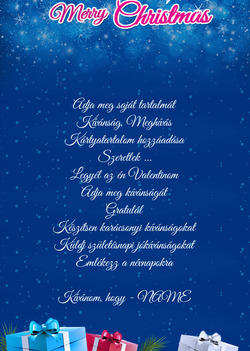 Merry Christmas
Adja meg saját tartalmát
Kívánság, Meghívás
Kártyatartalom hozzáadása
Szeretlek ...
Legyél az én Valentinom
Adja meg kívánságát
Gratulál
Készítsen karácsonyi kívánságokat
Küldj születésnapi jókívánságokat
Emlékezz a névnapokra
Kívánom, hogy - NAME